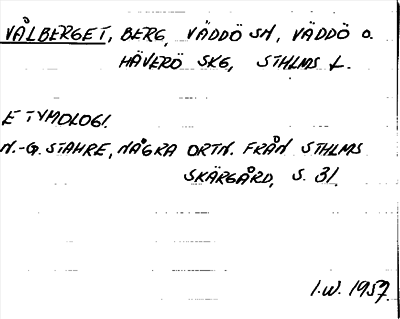 VÅLBERGET, BERG, VÄDDÖ SN, VÄDDÖ O.
HÄVERÖ SKG, STHLMS L.
ETYMOLOGI.
N.-G. STAHRE, NÅGRA ORTN. FRÅN STHLMS
SKÄRGÅRD, S. 31.
I.W. 1957.